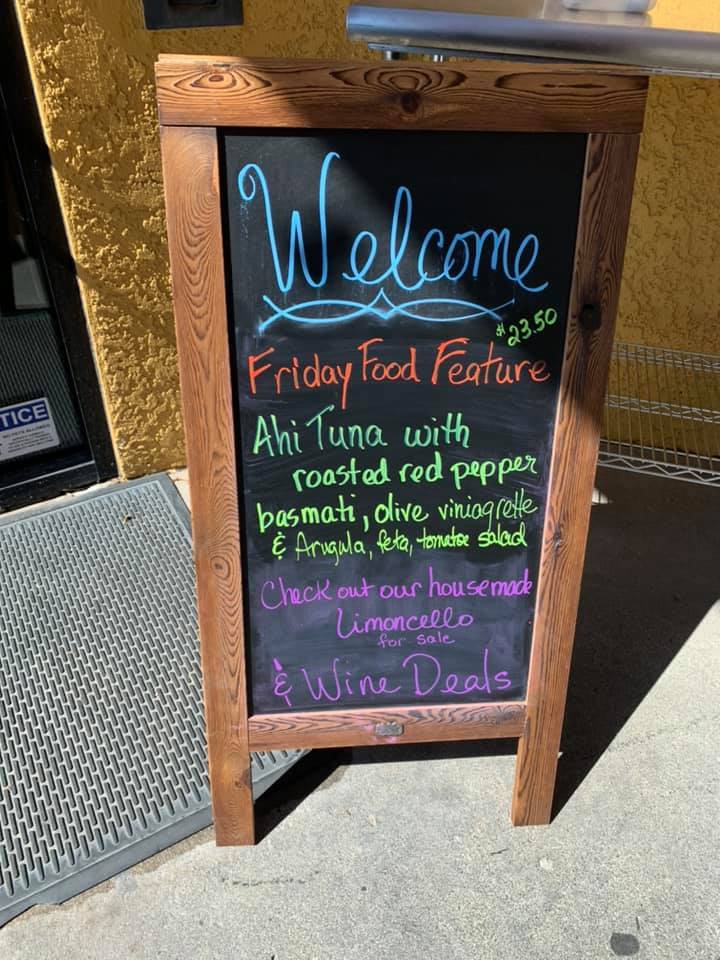 Welcome
$23.50
Friday Food Feature
Ahi Tuna with
roasted red pepper
basmati, olive viniagrette
& Arugula, feta, tomatoe salad
Check out our housemade
Limoncello
for sale
& Wine Deals
TICE
NO PETS ALLOWED